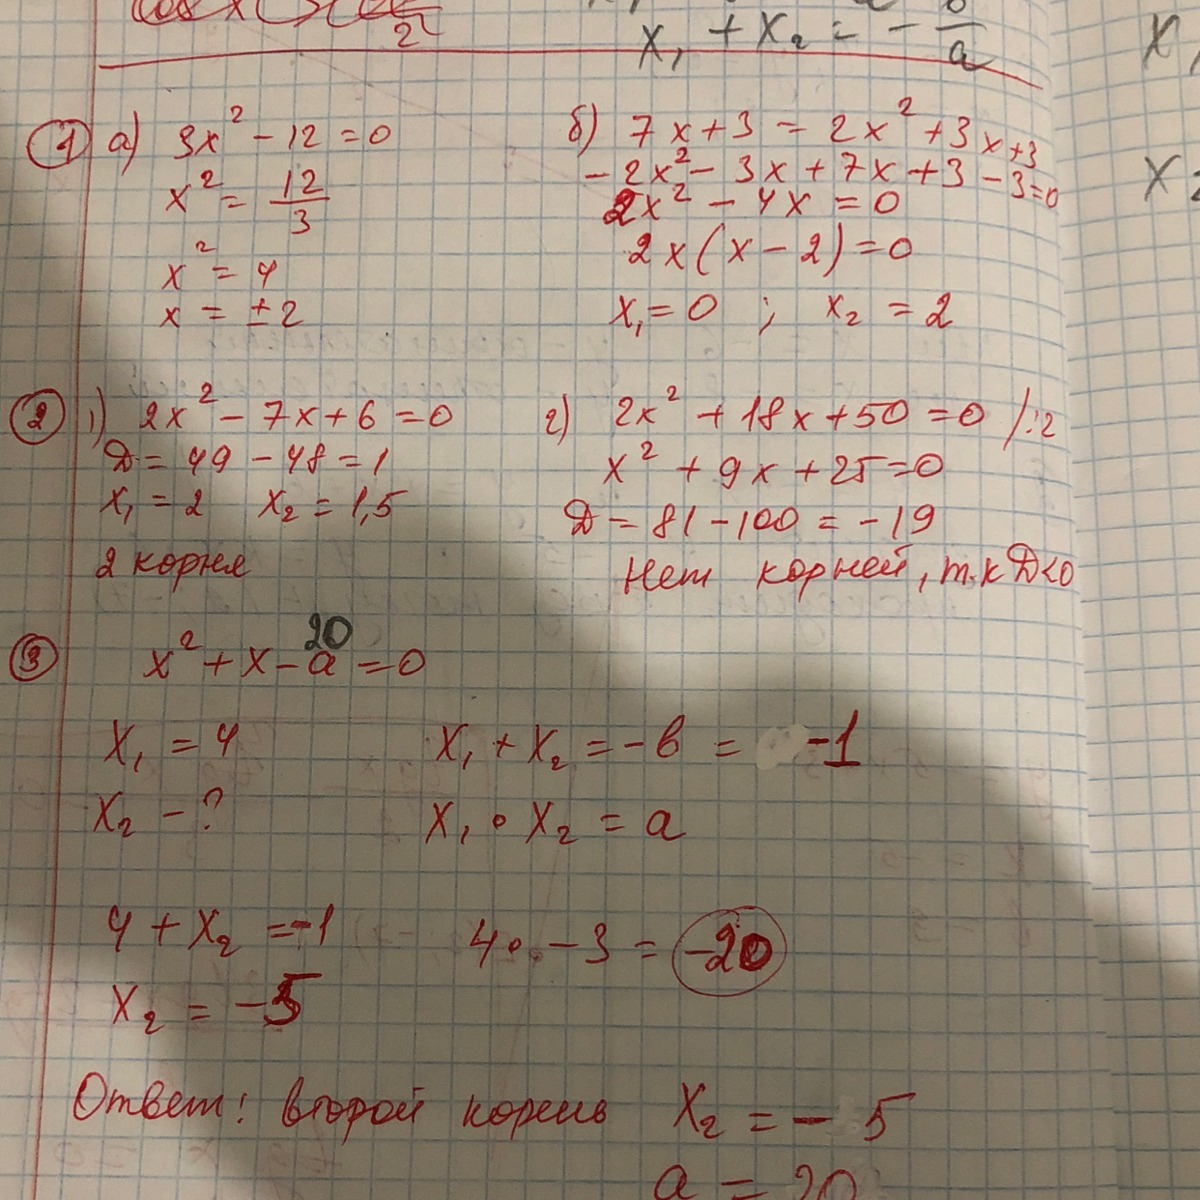 x₁ + x₂ = - b/a
① а) 3x² - 12 = 0
x² = 12/3
x² = 4
x = ± 2
б) 7x + 3 = 2x² + 3x + 3
- 2x² - 3x + 7x + 3 - 3 = 0
2x² - 4x = 0
2x(x - 2) = 0
x₁ = 0 ; x₂ = 2
② 1) 2x² - 7x + 6 = 0
Д = 49 - 48 = 1
x₁ = 2 x₂ = 1,5
2 корня
г) 2x² + 18x + 50 = 0 /:2
x² + 9x + 25 = 0
Д = 81 - 100 = - 19
Нет корней, т.к Д<0
③ 20
x² + x - a = 0
x₁ = 4 x₁ + x₂ = - в = -1
x₂ - ? x₁ • x₂ = a
4 + x₂ = -1 4 • - 3 = -20
x₂ = -5
Ответ: второй корень x₂ = - 5
a = 20